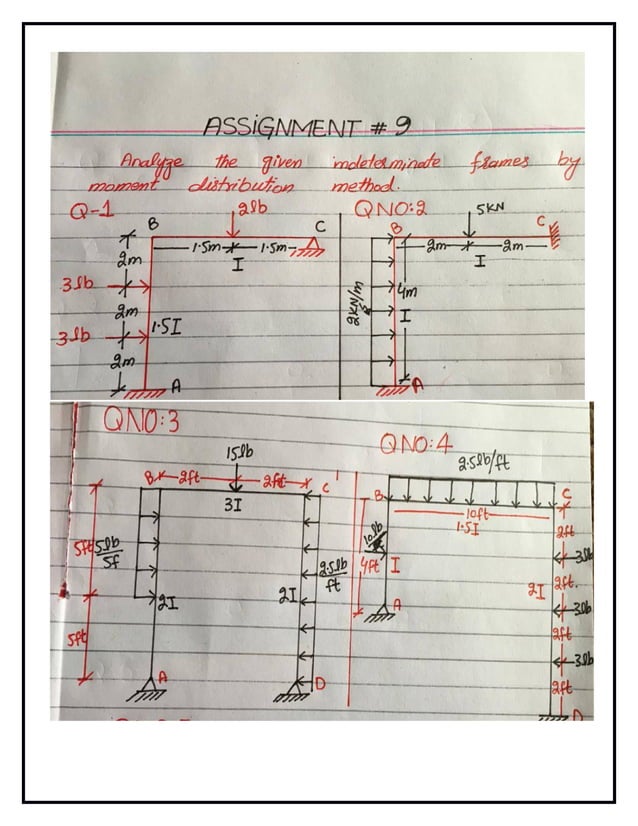 ASSIGNMENT # 9
Analyze the given indeterminate frames by
moment distribution method.
Q-1
2lb
B
C
1.5m
1.5m
I
2m
3lb
2m
1.5I
3lb
2m
A
QNO:2
5KN
B
C
2m
2m
I
2KN/m
4m
I
A
QNO:3
15lb
B
2ft
2ft
C
3I
5ft
5lb
5f
2.5lb
ft
2I
2I
5ft
A
D
QNO:4
2.5lb/ft
B
C
10ft
1.5I
10lb
4ft
I
A
2ft
3lb
2I
2ft.
3lb
2ft
3lb
2ft
D